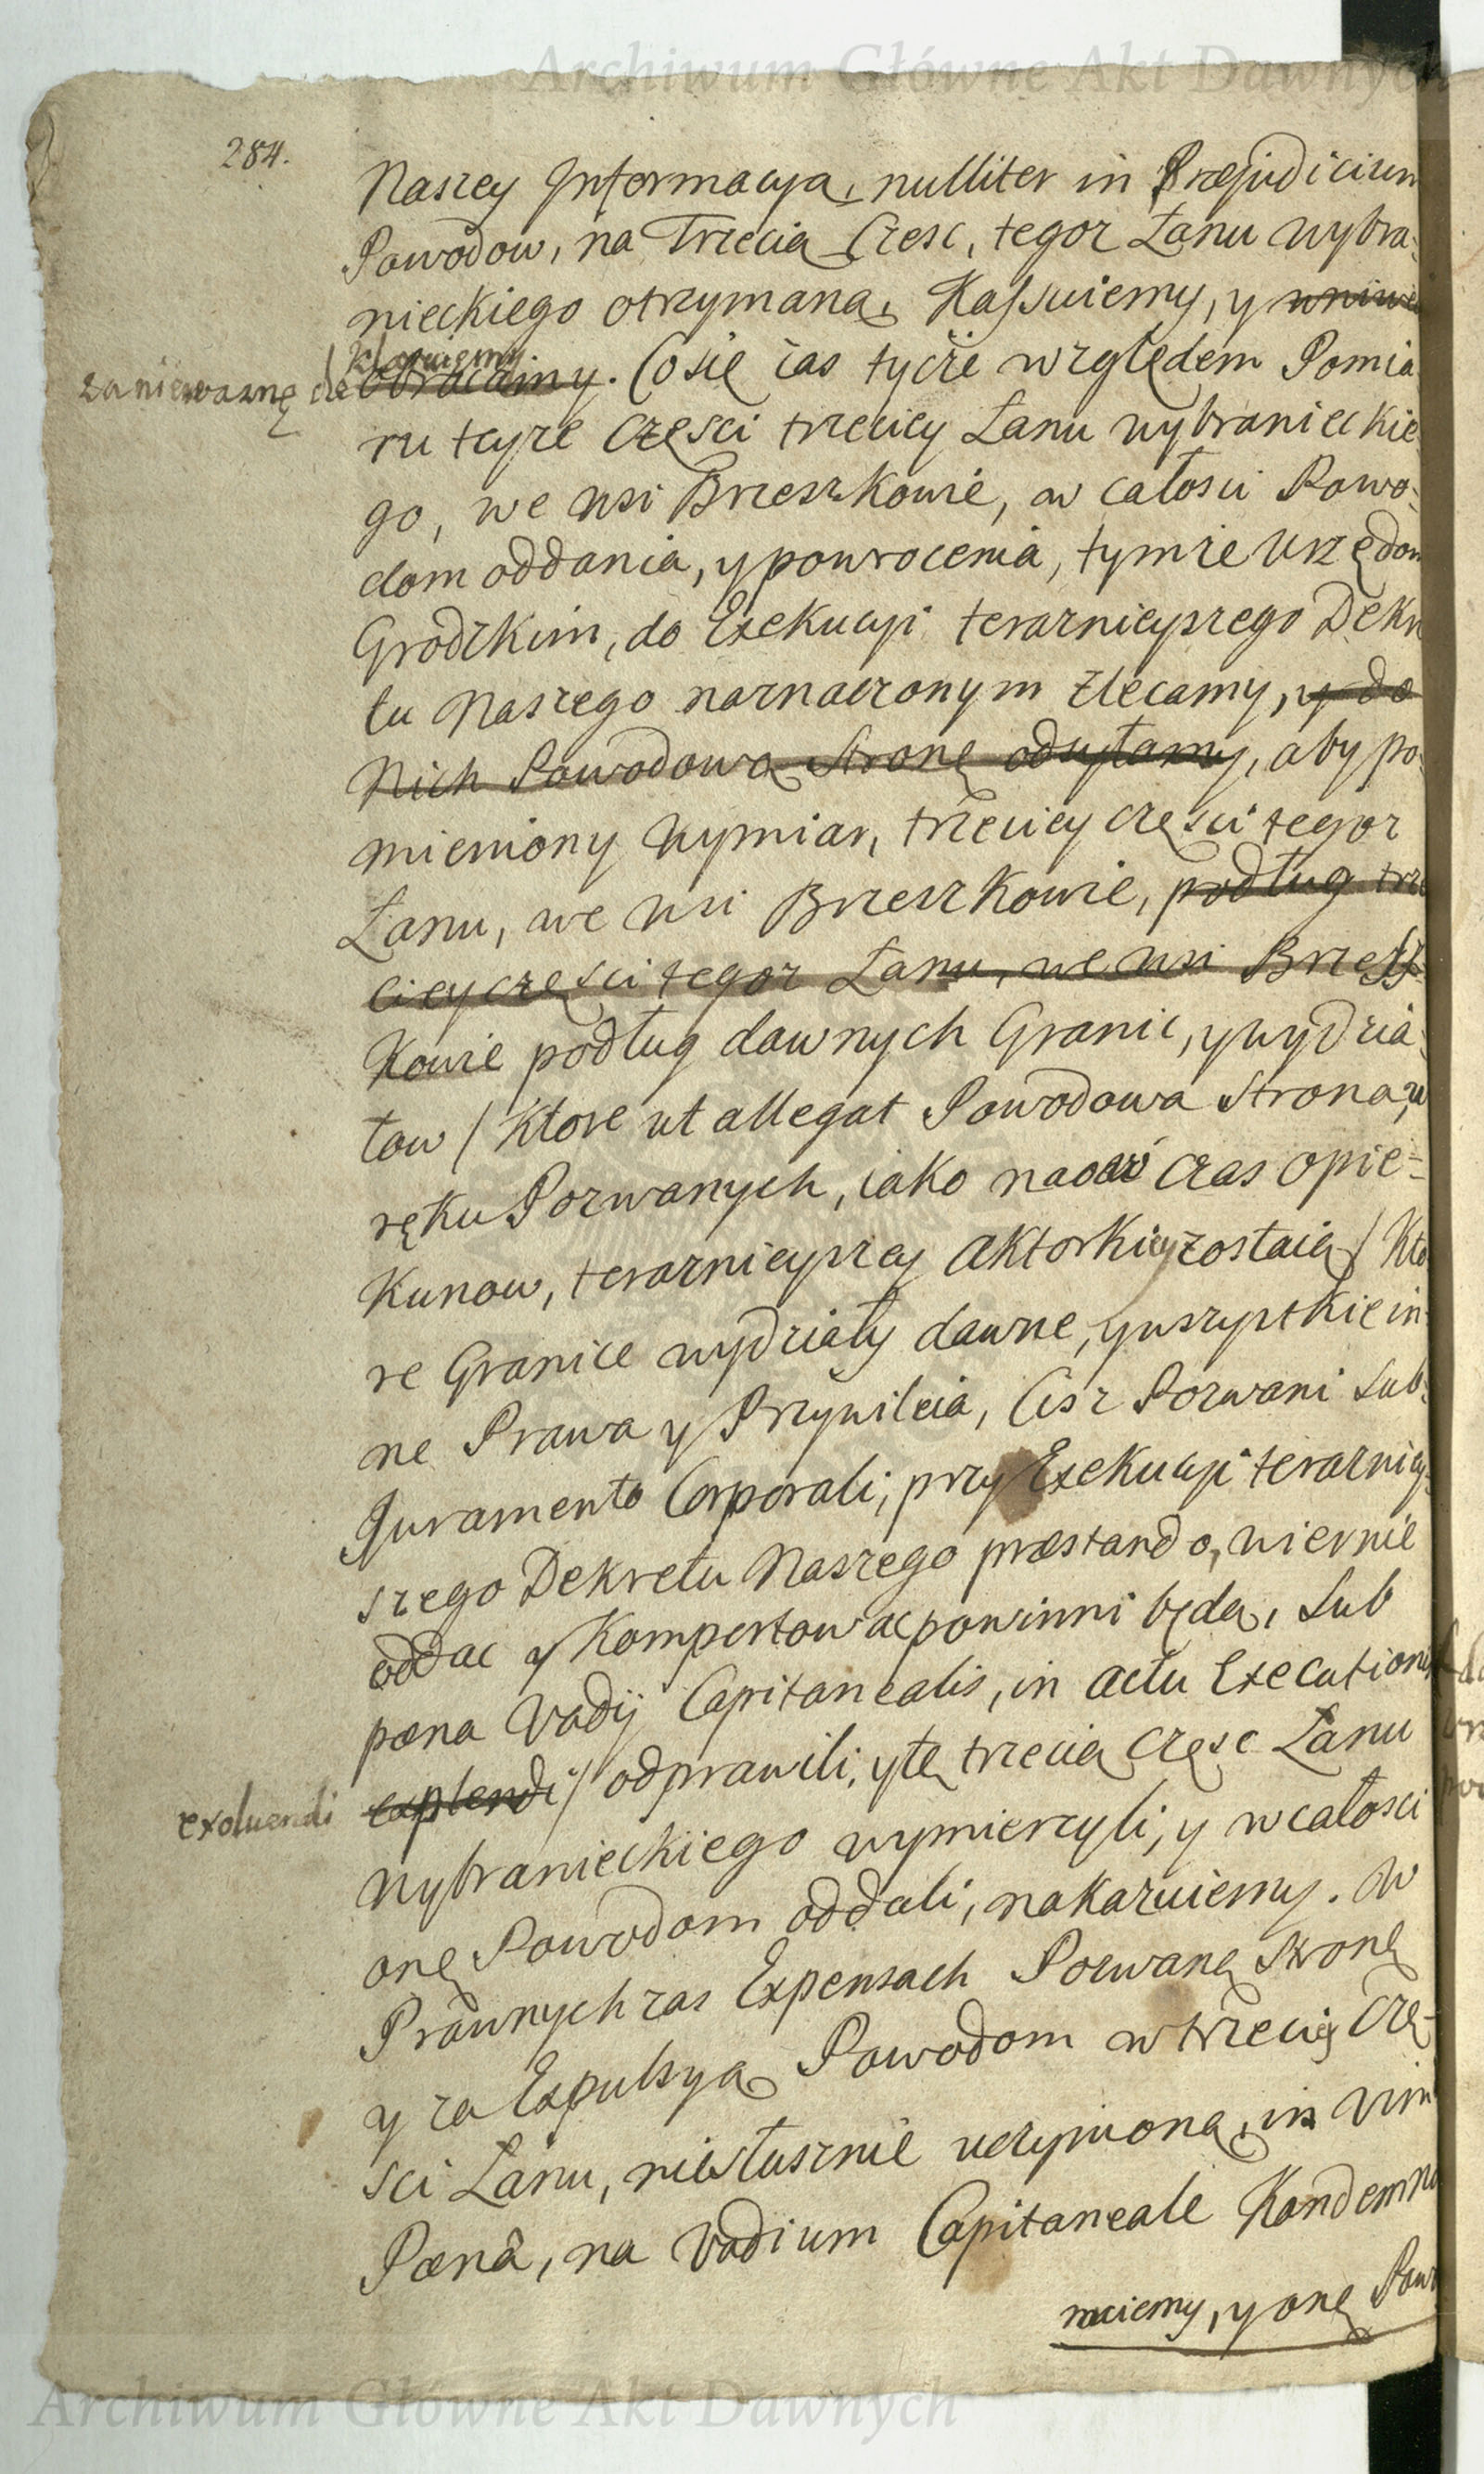 Archiwum Główne Akt Dawnych
284.
Naszey Informacyą, nulliter in Præjudicium
Powodow, na Trzecią Częsc, tegoz Łanu wybra-
nieckiego otrzymaną, Kassuiemy, y
za niewazną deklaruiemy
obracamy. Co się zas tycze względem Pomia
ru teyze Częsci trzeciey Łanu wybranieckie
go, we wsi Brzeszkowie, w całosci Powo-
dom oddania, y powrocenia, tymze Urzędom
Grodzkim, do Exekucyi teraznieyszego Dekre
tu Naszego naznaczonym zlecamy, y do
Nich Powodową Stronę odsyłamy, aby po-
mieniony wymiar, trzeciey częsci tegoz
Łanu, we wsi Brzeszkowie, podług trze
ciey częsci tegoz Łanu, we wsi Brzesz-
kowie podług dawnych Granic, y wydzia-
łow / ktore ut allegat Powodowa Strona, w
ręku Pozwanych, iako na czas opie-
kunow, teraznieyszey aktorki zostaią / kto
re Granice wydziały dawne, y wszystkie in-
ne Prawa y Przywileia, Cisz Pozwani sub-
Juramento Corporali, przy Exekucyi terazniey-
szego Dekretu Naszego præstando, wiernie
oddac y komportowac powinni będą, sub
pæna Vadij Capitanealis, in actu Executionis
exoluendi
explendi / odprawili, y tę trzecią częsc Łanu
wybranieckiego wymierzyli, y w całosci
onę Powodom oddali, nakazuiemy. W
Prawnych zas Expensach Pozwaną Stronę
y za Expulsyą Powodom w trzeciey Czę-
sci Łanu, niesłusznie uczynioną, in vim
Pænâ, na Vadium Capitaneale Kondemna
nuiemy, y onę Powo
Archiwum Główne Akt Dawnych